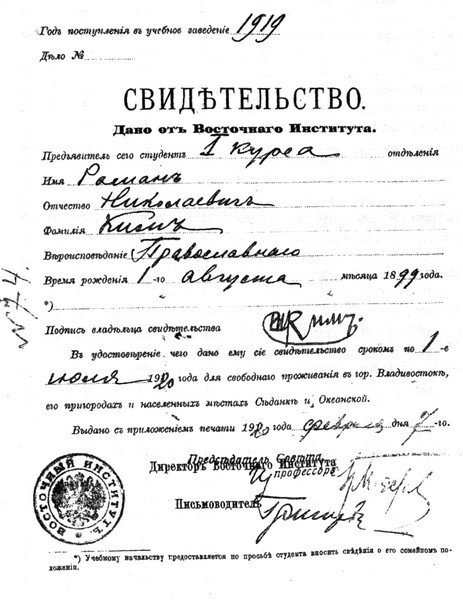 Годъ поступленія въ учебное заведеніе 1919
Дѣло №
СВИДѢТЕЛЬСТВО.
Дано отъ Восточнаго Института.
Предъявитель сего студентъ I курса отдѣленія
Имя Романъ
Отчество Николаевичъ
Фамилія Кимъ
Вѣроисповѣданіе Православнаго
Время рожденія 1-го августа мѣсяца 1899 года.
*)
Подпись владѣльца свидѣтельства РКимъ.
Въ удостовѣреніе чего дано ему сіе свидѣтельство срокомъ по 1-е
іюля 1920 года для свободнаго проживанія въ гор. Владивостокѣ,
его пригородахъ и населенныхъ мѣстахъ Сѣданкѣ и Океанской.
Выдано съ приложеніемъ печати 1920 года февраля дня 7-го.
Предсѣдатель Совѣта
Директоръ Восточнаго Института
профессоръ
Письмоводитель
ВОСТОЧНЫЙ ИНСТИТУТЪ
*) Учебному начальству предоставляется по просьбѣ студента вносить свѣдѣнія о его семейномъ по-
ложеніи.